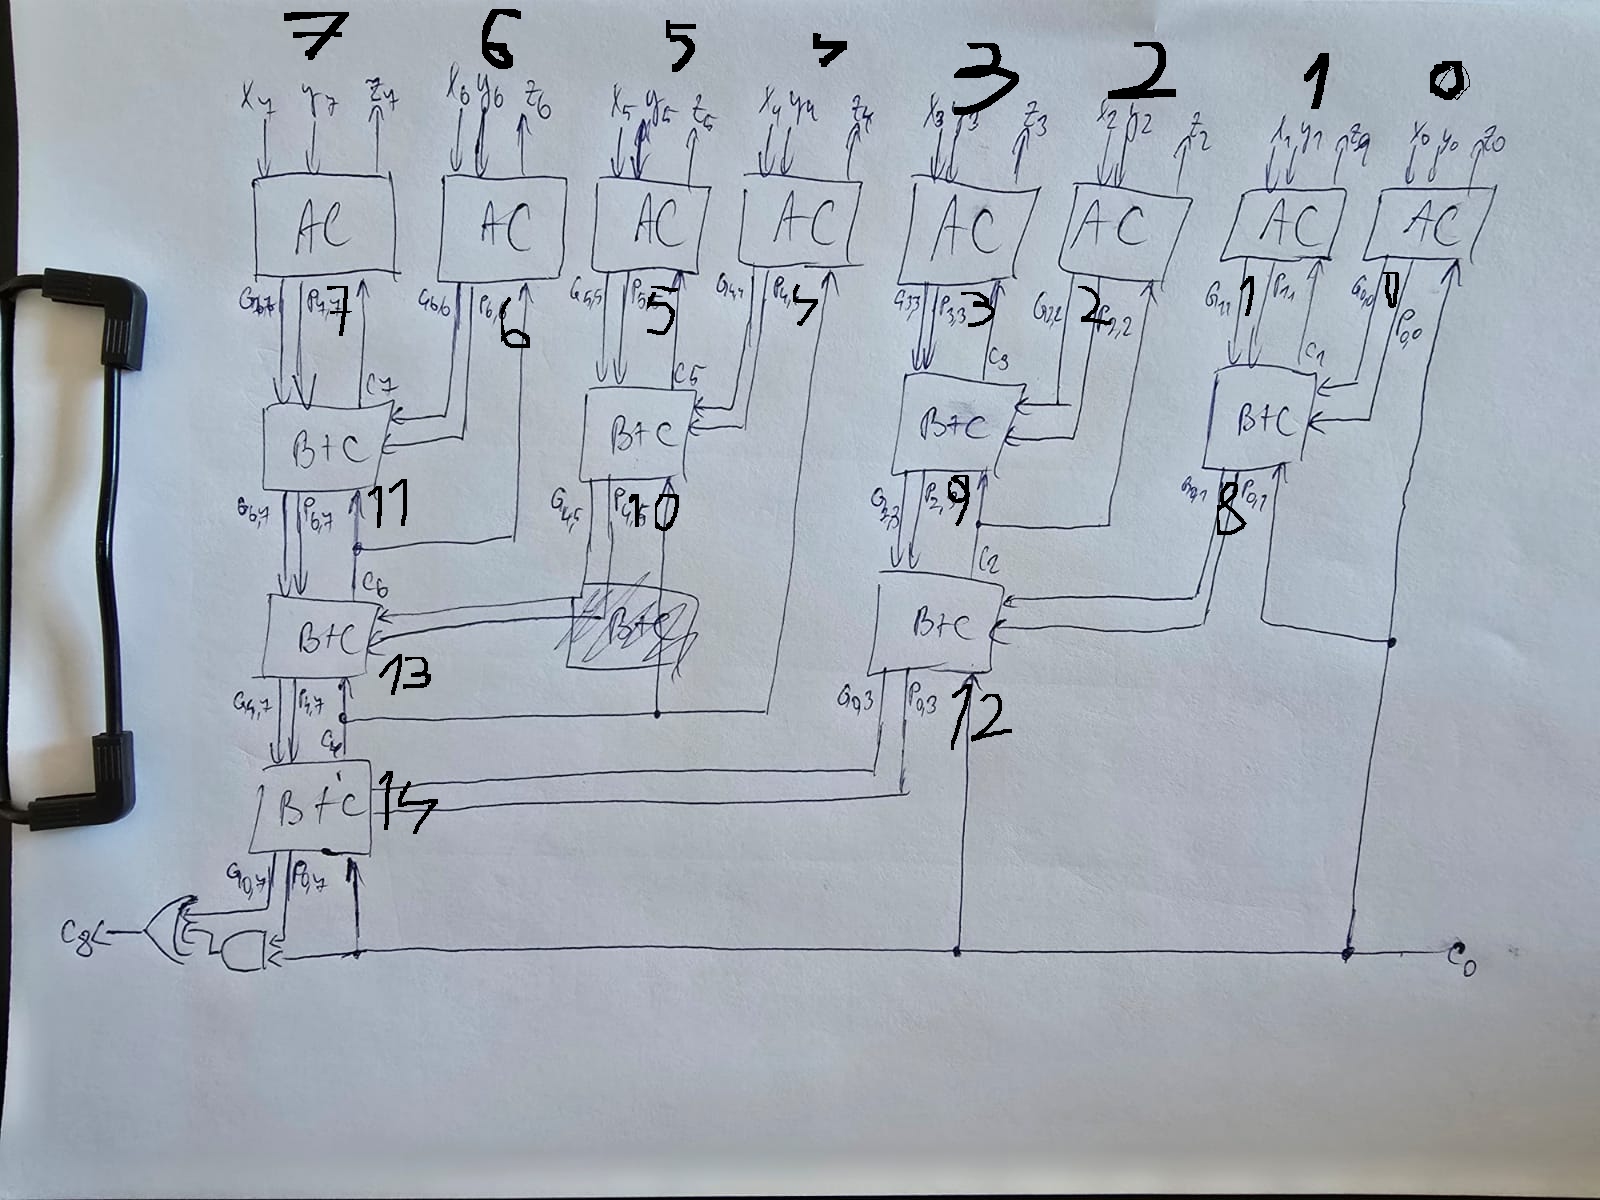 7 6 5 4 3 2 1 0
X7 y7 Z7 X6 y6 Z6 X5 y5 Z5 X4 y4 Z4 X3 y3 Z3 X2 y2 Z2 X1 y1 Z1 X0 y0 Z0
AC AC AC AC AC AC AC AC
P7,7 7 G6,6 P6,6 6 G5,5 P5,5 5 G4,4 P4,4 4 G3,3 P3,3 3 G2,2 P2,2 2 G1,1 1 P1,1 G0,0 0 P0,0
C7 C5 C3 C1
B+C B+C B+C B+C
G6,7 P6,7 11 G4,5 P4,5 10 P2,3 9 G0,1 P0,1 8
C6 C2
B+C B+C B+C
13
G4,7 P4,7 G0,3 P0,3 12
C4
B+C 14
G0,7 P0,7
C8 C0